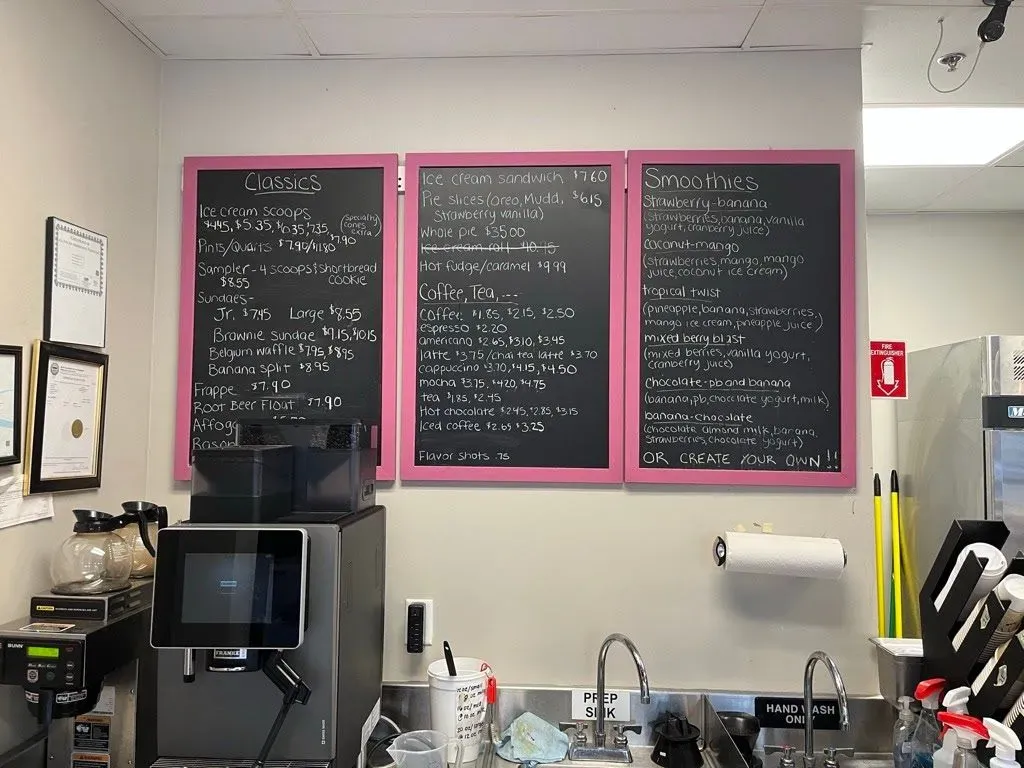 Classics
Ice cream scoops
$4.45, $5.35, $6.35, $7.35
(Specialty cones extra)
Pints/Quarts $7.90/11.80 $7.90
Sampler - 4 scoops & shortbread
$8.55 cookie
Sundaes-
Jr. $7.45 Large $8.55
Brownie sundae $9.15, $10.15
Belgium waffle $7.95, $8.95
Banana split $8.95
Frappe $7.90
Root Beer Float $7.90
Affoga
Ice cream sandwich $7.60
Pie slices (oreo, Mudd, $6.15
strawberry vanilla)
whole pie $35.00
Ice cream roll
Hot fudge/caramel $9.99
Coffee, Tea, ...
Coffee $1.85, $2.15, $2.50
espresso $2.20
americano $2.65, $3.10, $3.45
latte $3.75/chai tea latte $3.70
cappuccino $3.70, $4.15, $4.50
mocha $3.75, $4.20, $4.75
tea $1.85, $2.45
Hot chocolate $2.45, $2.85, $3.15
Iced coffee $2.65 $3.25
Flavor shots .75
Smoothies
Strawberry-banana
(strawberries, banana, vanilla
yogurt, cranberry juice)
coconut-mango
(strawberries, mango, mango
juice, coconut ice cream)
tropical twist
(pineapple, banana, strawberries,
mango ice cream, pineapple juice)
mixed berry blast
(mixed berries, vanilla yogurt,
cranberry juice)
chocolate-pb and banana
(banana, pb, chocolate yogurt, milk)
banana-chocolate
(chocolate almond milk, banana,
strawberries, chocolate yogurt)
OR CREATE YOUR OWN !!
FIRE
EXTINGUISHER
BUNN
FRANKE
PREP
SINK
HAND WASH
ONLY